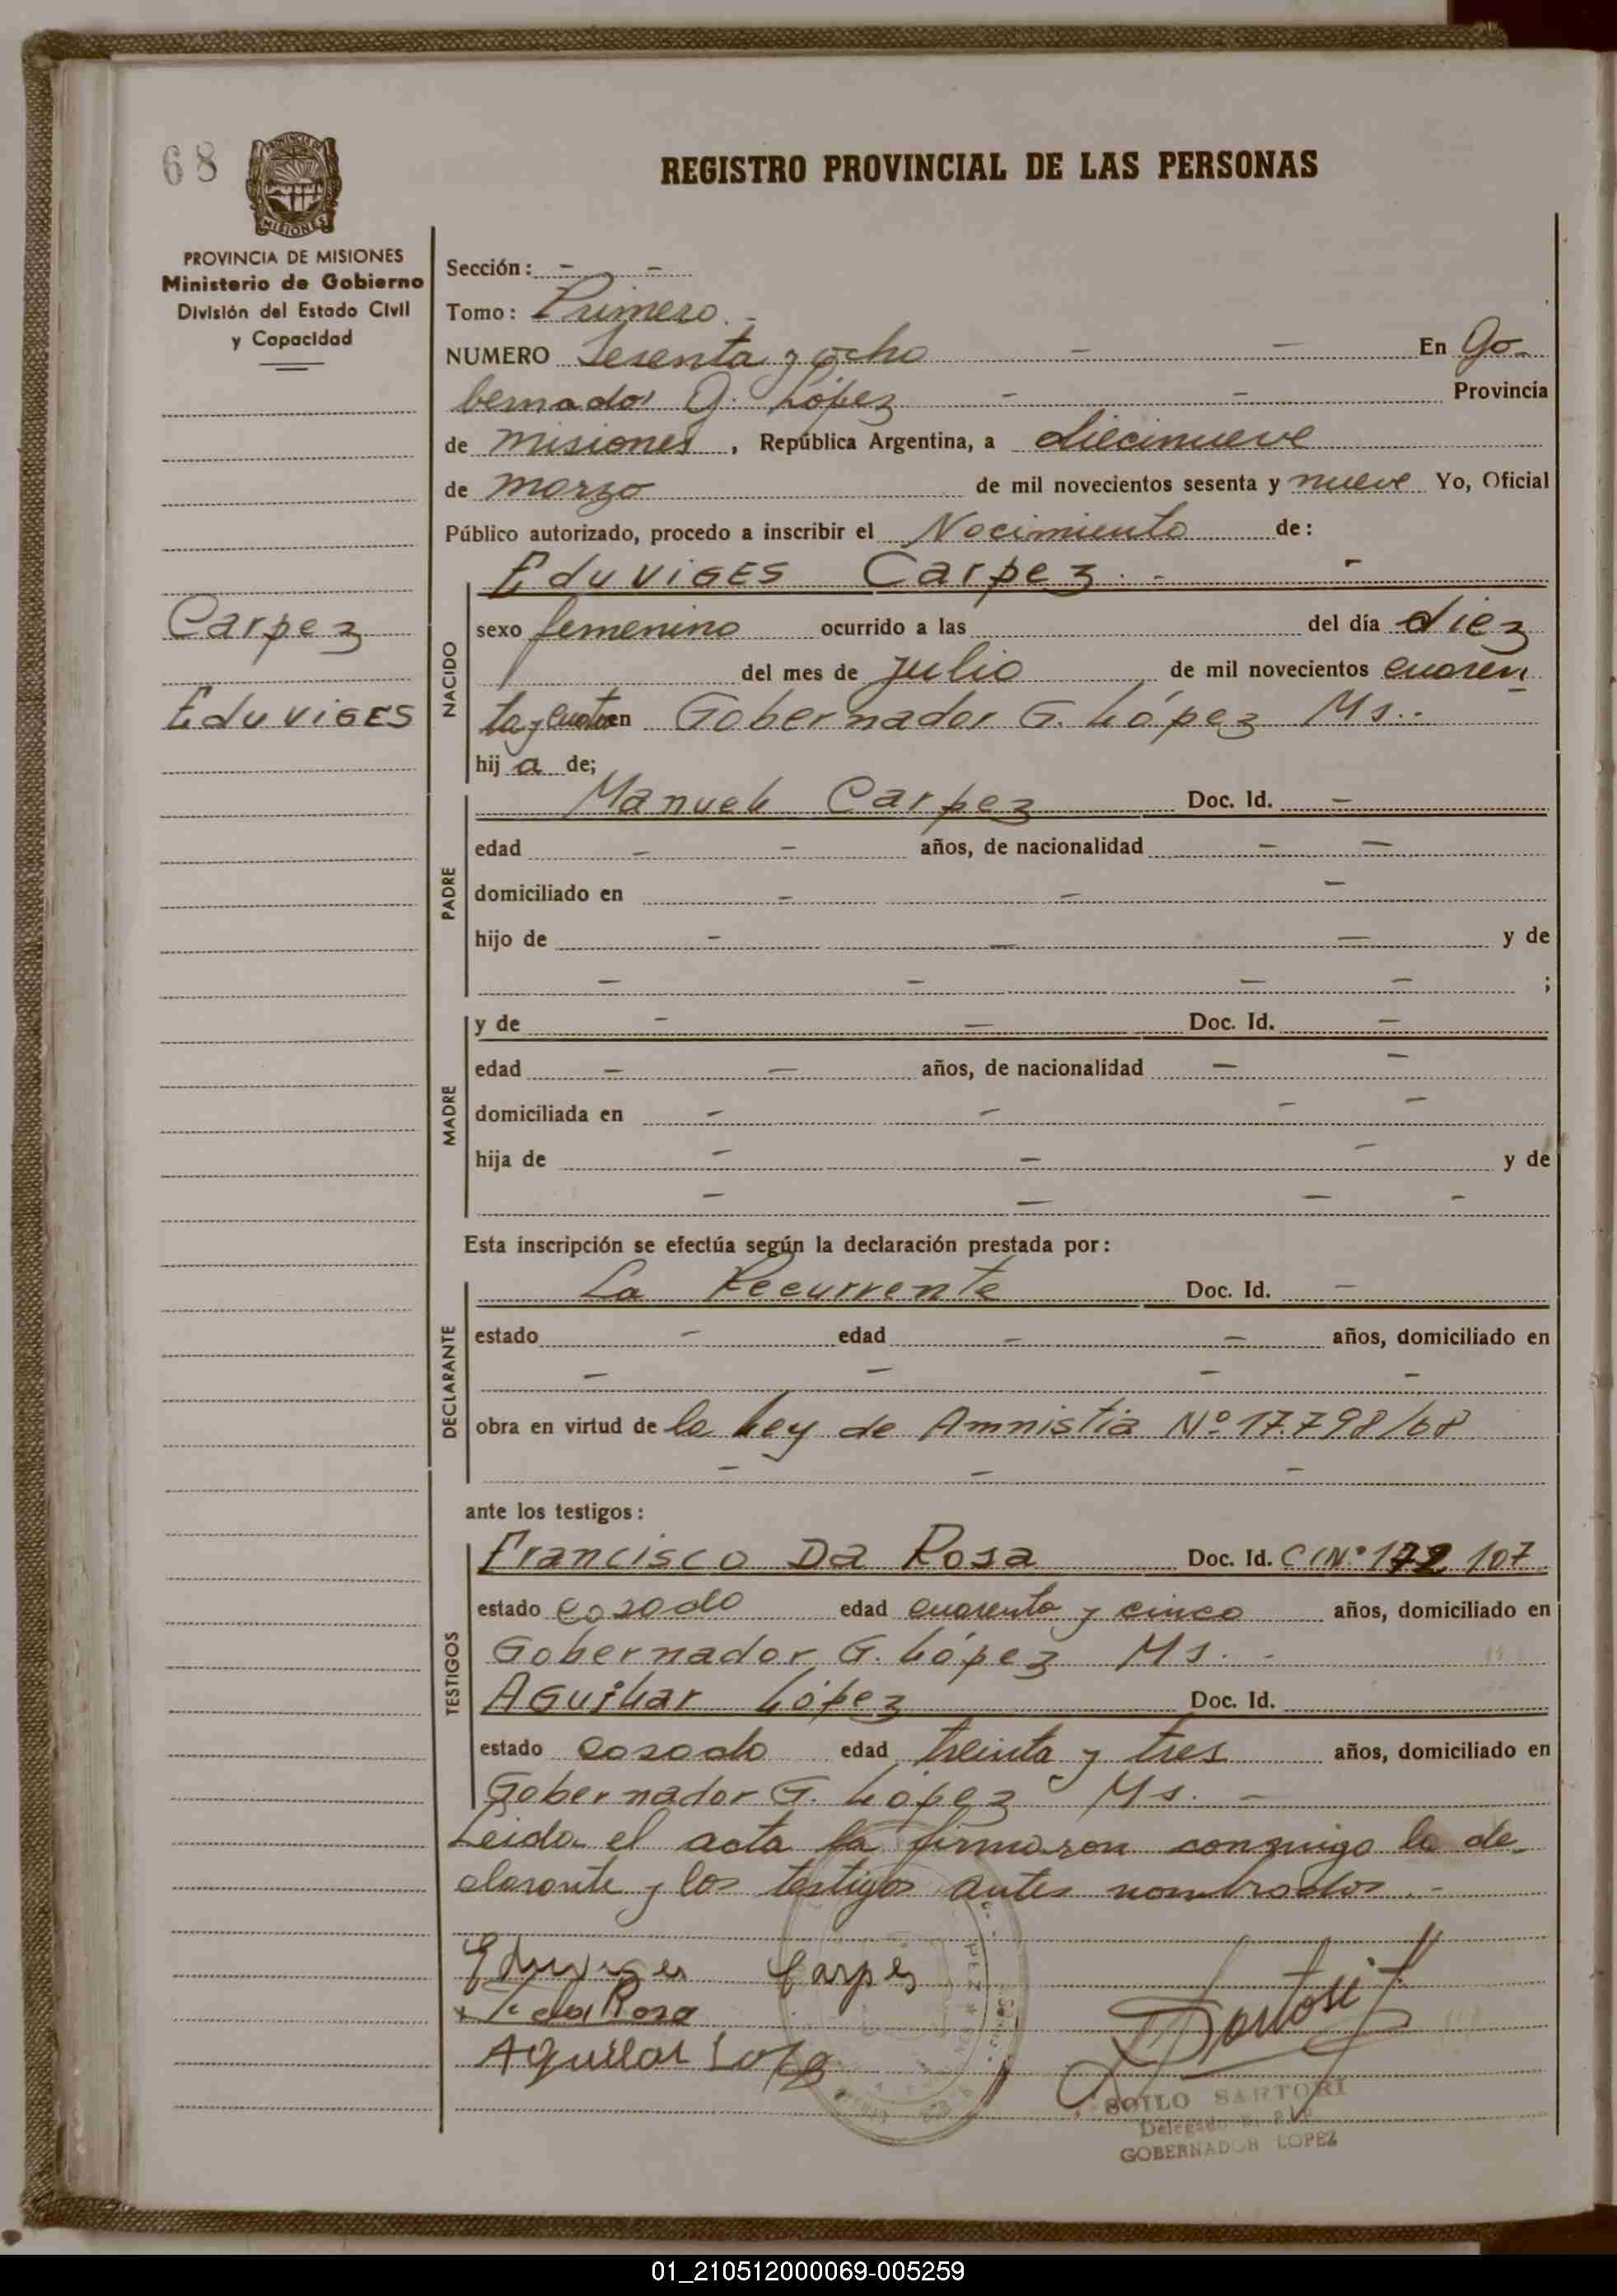 68
PROVINCIA DE MISIONES
Ministerio de Gobierno
División del Estado Civil
y Capacidad
REGISTRO PROVINCIAL DE LAS PERSONAS
Sección: - -
Tomo: Primero.-
NUMERO Sesenta y ocho - - En Go-
bernador G. López - - Provincia
de Misiones, República Argentina, a diecinueve
de marzo de mil novecientos sesenta y nueve Yo, Oficial
Público autorizado, procedo a inscribir el Nacimiento de:
Eduviges Carpez.- -
Carpez
Eduviges
NACIDO
sexo femenino ocurrido a las del día diez
del mes de julio de mil novecientos cuaren
ta y cuatro en Gobernador G. López Ms.-
hija de;
PADRE
Manuel Carpez Doc. Id. -
edad - - años, de nacionalidad - -
domiciliado en - - -
hijo de - - - y de
- - - - ;
MADRE
y de - - Doc. Id. -
edad - - años, de nacionalidad - -
domiciliada en - - - -
hija de - - - y de
- - - -
Esta inscripción se efectúa según la declaración prestada por:
DECLARANTE
La Recurrente Doc. Id. -
estado - edad - - años, domiciliado en
- - - -
obra en virtud de la Ley de Amnistia Nº 17.798/68
- - -
ante los testigos:
TESTIGOS
Francisco Da Rosa Doc. Id. CIN° 172 107
estado casado edad cuarenta y cinco años, domiciliado en
Gobernador G. López Ms. -
Aguilar López Doc. Id.
estado casado edad treinta y tres años, domiciliado en
Gobernador G. López Ms. -
Leida el acta la firmaron conmigo la de-
clarante y los testigos antes nombrados.-
Eduviges Carpes
F. da Rosa
Aguilar Lopez
SOILO SARTORI
Delegado
GOBERNADOR LOPEZ
01_210512000069-005259